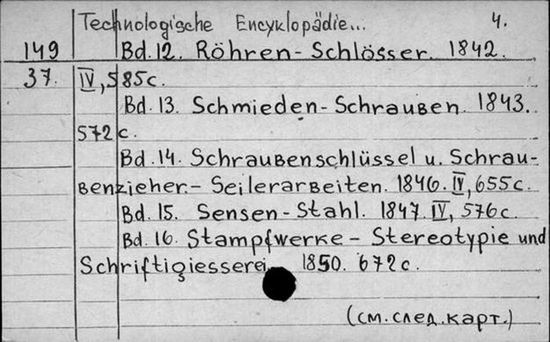 Technologische Encyklopädie... 4.
149 Bd.12. Röhren-Schlösser. 1842.
37. IV, 585c.
Bd.13. Schmieden-Schrauben. 1843.
572c.
Bd.14. Schraubenschlüssel u. Schrau-
benzieher.-Seilerarbeiten. 1846. IV, 655c.
Bd.15. Sensen-Stahl. 1847. IV, 576c.
Bd.16. Stampfwerke - Stereotypie und
Schriftigiesserei. 1850. 672c.
(см. след. карт.)